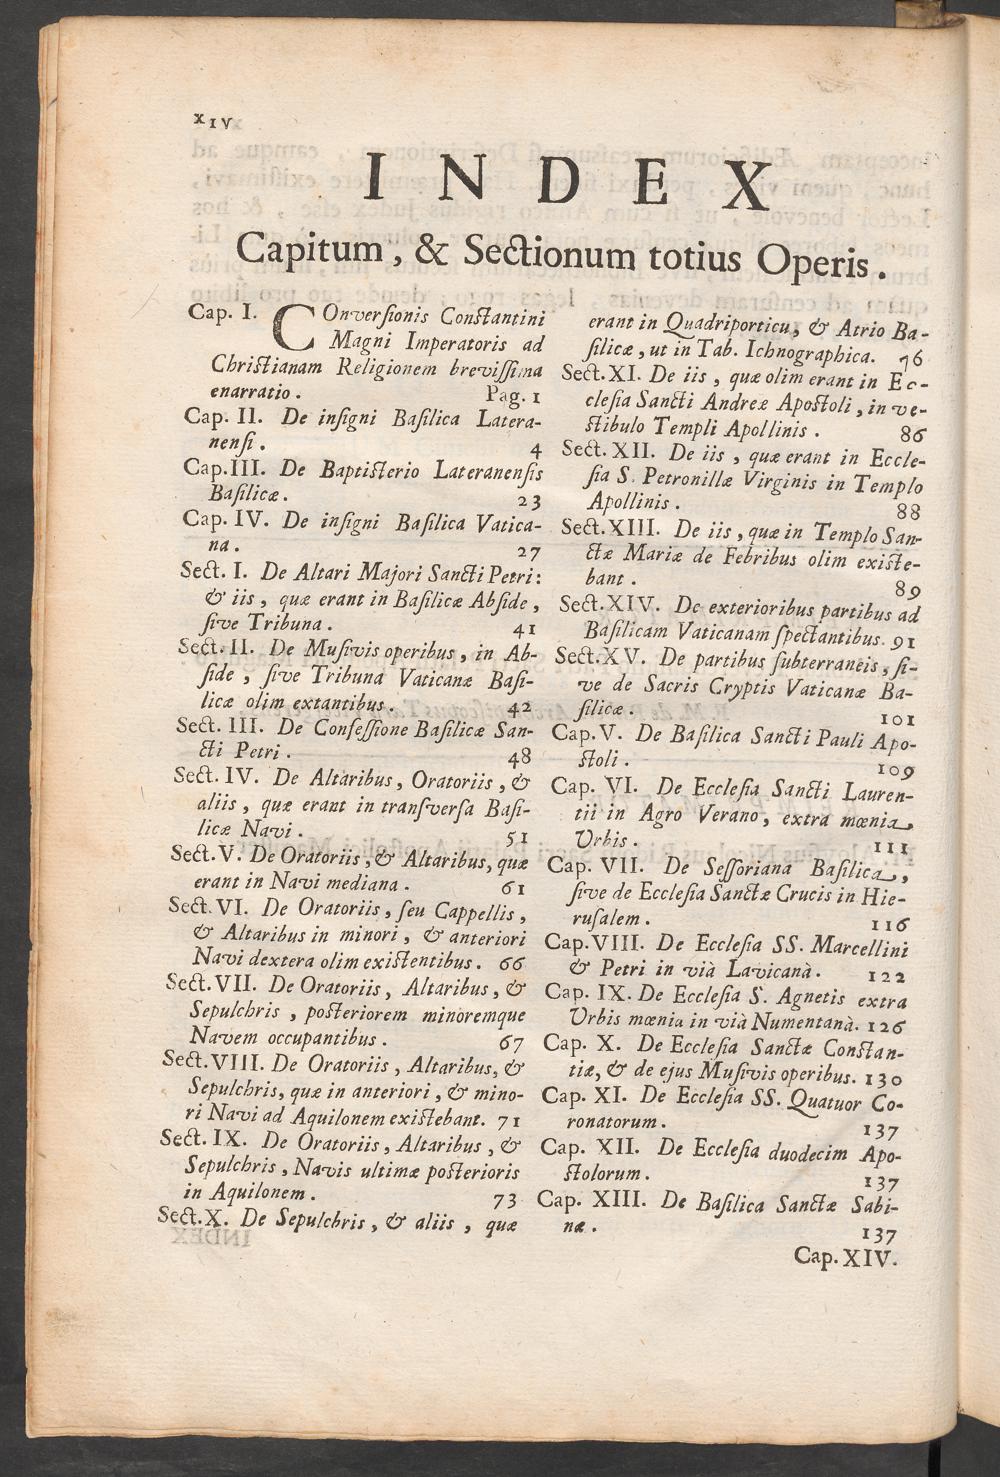 XIV
INDEX
Capitum, & Sectionum totius Operis.
Cap. I. COnversionis Constantini
Magni Imperatoris ad
Christianam Religionem brevissima
enarratio. Pag. 1
Cap. II. De insigni Basilica Latera-
nensi. 4
Cap. III. De Baptisterio Lateranensis
Basilicæ. 23
Cap. IV. De insigni Basilica Vatica-
na. 27
Sect. I. De Altari Majori Sancti Petri:
& iis, quæ erant in Basilicæ Abside,
sive Tribuna. 41
Sect. II. De Musivis operibus, in Ab-
side, sive Tribuna Vaticanæ Basi-
licæ olim extantibus. 42
Sect. III. De Confessione Basilicæ San-
cti Petri. 48
Sect. IV. De Altaribus, Oratoriis, &
aliis, quæ erant in transversa Basi-
licæ Navi. 51
Sect. V. De Oratoriis, & Altaribus, quæ
erant in Navi mediana. 61
Sect. VI. De Oratoriis, seu Cappellis,
& Altaribus in minori, & anteriori
Navi dextera olim existentibus. 66
Sect. VII. De Oratoriis, Altaribus, &
Sepulchris, posteriorem minoremque
Navem occupantibus. 67
Sect. VIII. De Oratoriis, Altaribus, &
Sepulchris, quæ in anteriori, & mino-
ri Navi ad Aquilonem existebant. 71
Sect. IX. De Oratoriis, Altaribus, &
Sepulchris, Navis ultimæ posterioris
in Aquilonem. 73
Sect. X. De Sepulchris, & aliis, quæ
erant in Quadriporticu, & Atrio Ba-
silicæ, ut in Tab. Ichnographica. 76
Sect. XI. De iis, quæ olim erant in Ec-
clesia Sancti Andreæ Apostoli, in ve-
stibulo Templi Apollinis. 86
Sect. XII. De iis, quæ erant in Eccle-
sia S. Petronillæ Virginis in Templo
Apollinis. 88
Sect. XIII. De iis, quæ in Templo San-
ctæ Mariæ de Febribus olim existe-
bant. 89
Sect. XIV. De exterioribus partibus ad
Basilicam Vaticanam spectantibus. 91
Sect. XV. De partibus subterraneis, si-
ve de Sacris Cryptis Vaticanæ Ba-
silicæ. 101
Cap. V. De Basilica Sancti Pauli Apo-
stoli. 109
Cap. VI. De Ecclesia Sancti Lauren-
tii in Agro Verano, extra mœnia
Urbis. 111
Cap. VII. De Sessoriana Basilica,
sive de Ecclesia Sanctæ Crucis in Hie-
rusalem. 116
Cap. VIII. De Ecclesia SS. Marcellini
& Petri in viâ Lavicanâ. 122
Cap. IX. De Ecclesia S. Agnetis extra
Urbis mœnia in viâ Numentanâ. 126
Cap. X. De Ecclesia Sanctæ Constan-
tiæ, & de ejus Musivis operibus. 130
Cap. XI. De Ecclesia SS. Quatuor Co-
ronatorum. 137
Cap. XII. De Ecclesia duodecim Apo-
stolorum. 137
Cap. XIII. De Basilica Sanctæ Sabi-
næ. 137
Cap. XIV.